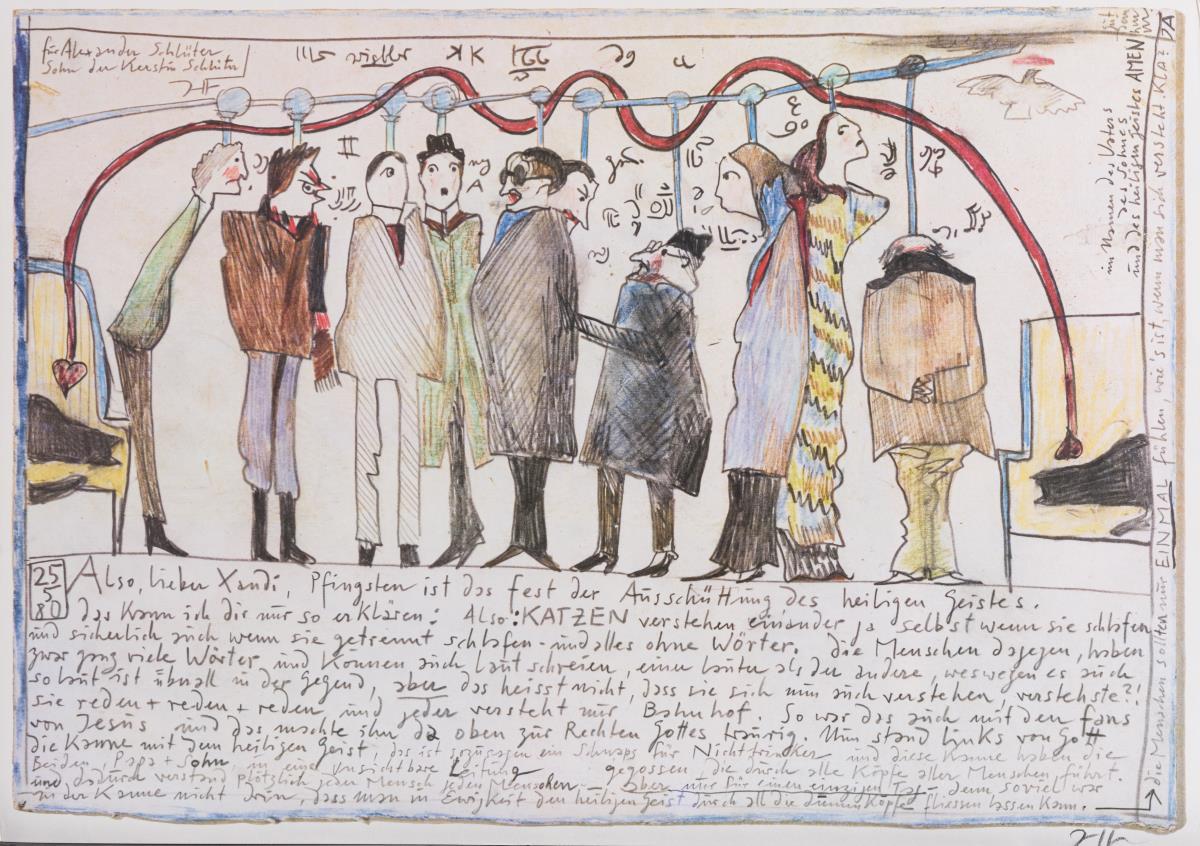 für Alexander Schlüter
Sohn der Kerstin Schlüter
KK
im Namen des Vaters
des Sohnes
und des heiligen Geistes AMEN
25
5
80
Also, lieber Xandi, Pfingsten ist das Fest der Ausschüttung des heiligen Geistes.
das kann ich dir nur so erklären: Also: KATZEN verstehen einander ja selbst wenn sie schlafen
und sicherlich auch wenn sie getrennt schlafen - und alles ohne Wörter. Die Menschen dagegen, haben
zwar ganz viele Wörter und können auch laut schreien, einer lauter als der andere, weswegen es auch
so laut ist überall in der Gegend, aber das heisst nicht, dass sie sich nun auch verstehen, verstehste?!
sie reden + reden + reden und jeder versteht nur Bahnhof. So war das auch mit den Fans
von Jesus und das machte ihn da oben zur Rechten Gottes traurig. Nun stand links von Gott
die Kanne mit dem heiligen Geist, das ist sozusagen ein Schnaps für Nichttrinker und diese Kanne haben die
Beiden, Papa + Sohn, in eine unsichtbare Leitung gegossen die durch alle Köpfe aller Menschen führt.
und dadurch verstand plötzlich jeder Mensch jeden Menschen - aber nur für einen einzigen Tag - denn soviel war
in der Kanne nicht drin, dass man in Ewigkeit den heiligen Geist durch all die dummen Köpfe fliessen lassen kann.
die Menschen sollten nur EINMAL fühlen, wie's ist, wenn man sich versteht Kla? JA